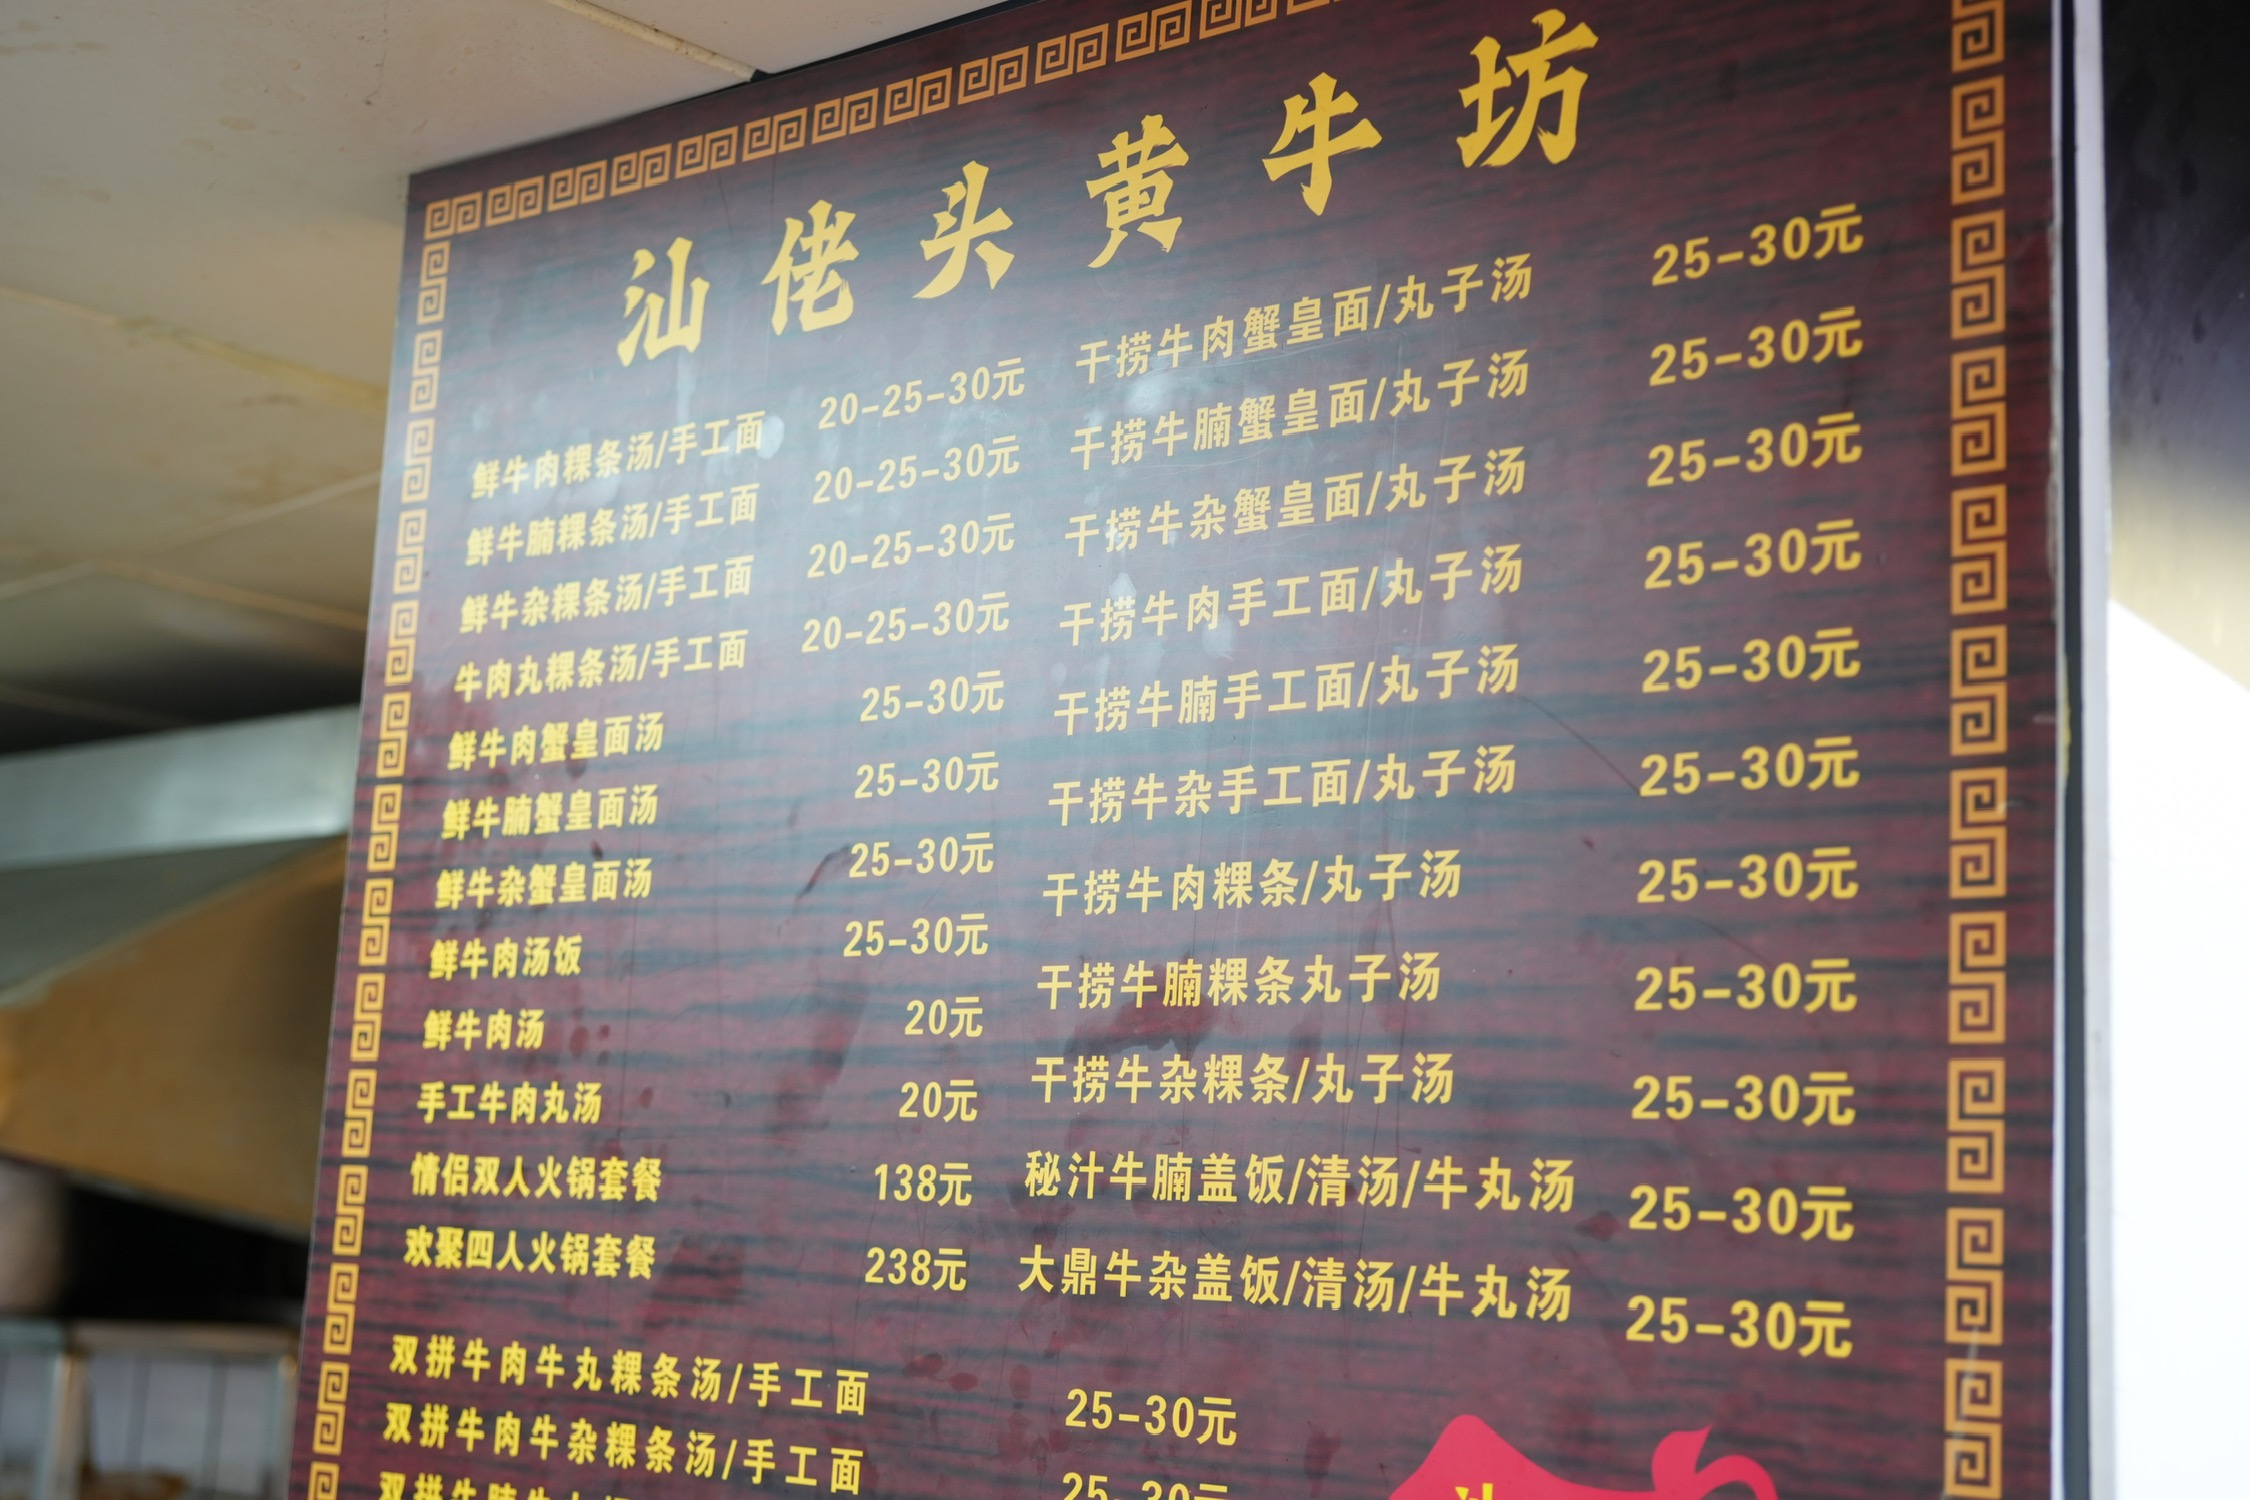 汕佬头黄牛坊
鲜牛肉粿条汤/手工面 20-25-30元
鲜牛腩粿条汤/手工面 20-25-30元
鲜牛杂粿条汤/手工面 20-25-30元
牛肉丸粿条汤/手工面 20-25-30元
鲜牛肉蟹皇面汤 25-30元
鲜牛腩蟹皇面汤 25-30元
鲜牛杂蟹皇面汤 25-30元
鲜牛肉汤饭 25-30元
鲜牛肉汤 20元
手工牛肉丸汤 20元
情侣双人火锅套餐 138元
欢聚四人火锅套餐 238元
干捞牛肉蟹皇面/丸子汤 25-30元
干捞牛腩蟹皇面/丸子汤 25-30元
干捞牛杂蟹皇面/丸子汤 25-30元
干捞牛肉手工面/丸子汤 25-30元
干捞牛腩手工面/丸子汤 25-30元
干捞牛杂手工面/丸子汤 25-30元
干捞牛肉粿条/丸子汤 25-30元
干捞牛腩粿条丸子汤 25-30元
干捞牛杂粿条/丸子汤 25-30元
秘汁牛腩盖饭/清汤/牛丸汤 25-30元
大鼎牛杂盖饭/清汤/牛丸汤 25-30元
双拼牛肉牛丸粿条汤/手工面 25-30元
双拼牛肉牛杂粿条汤/手工面 25-30元
双拼牛腩牛